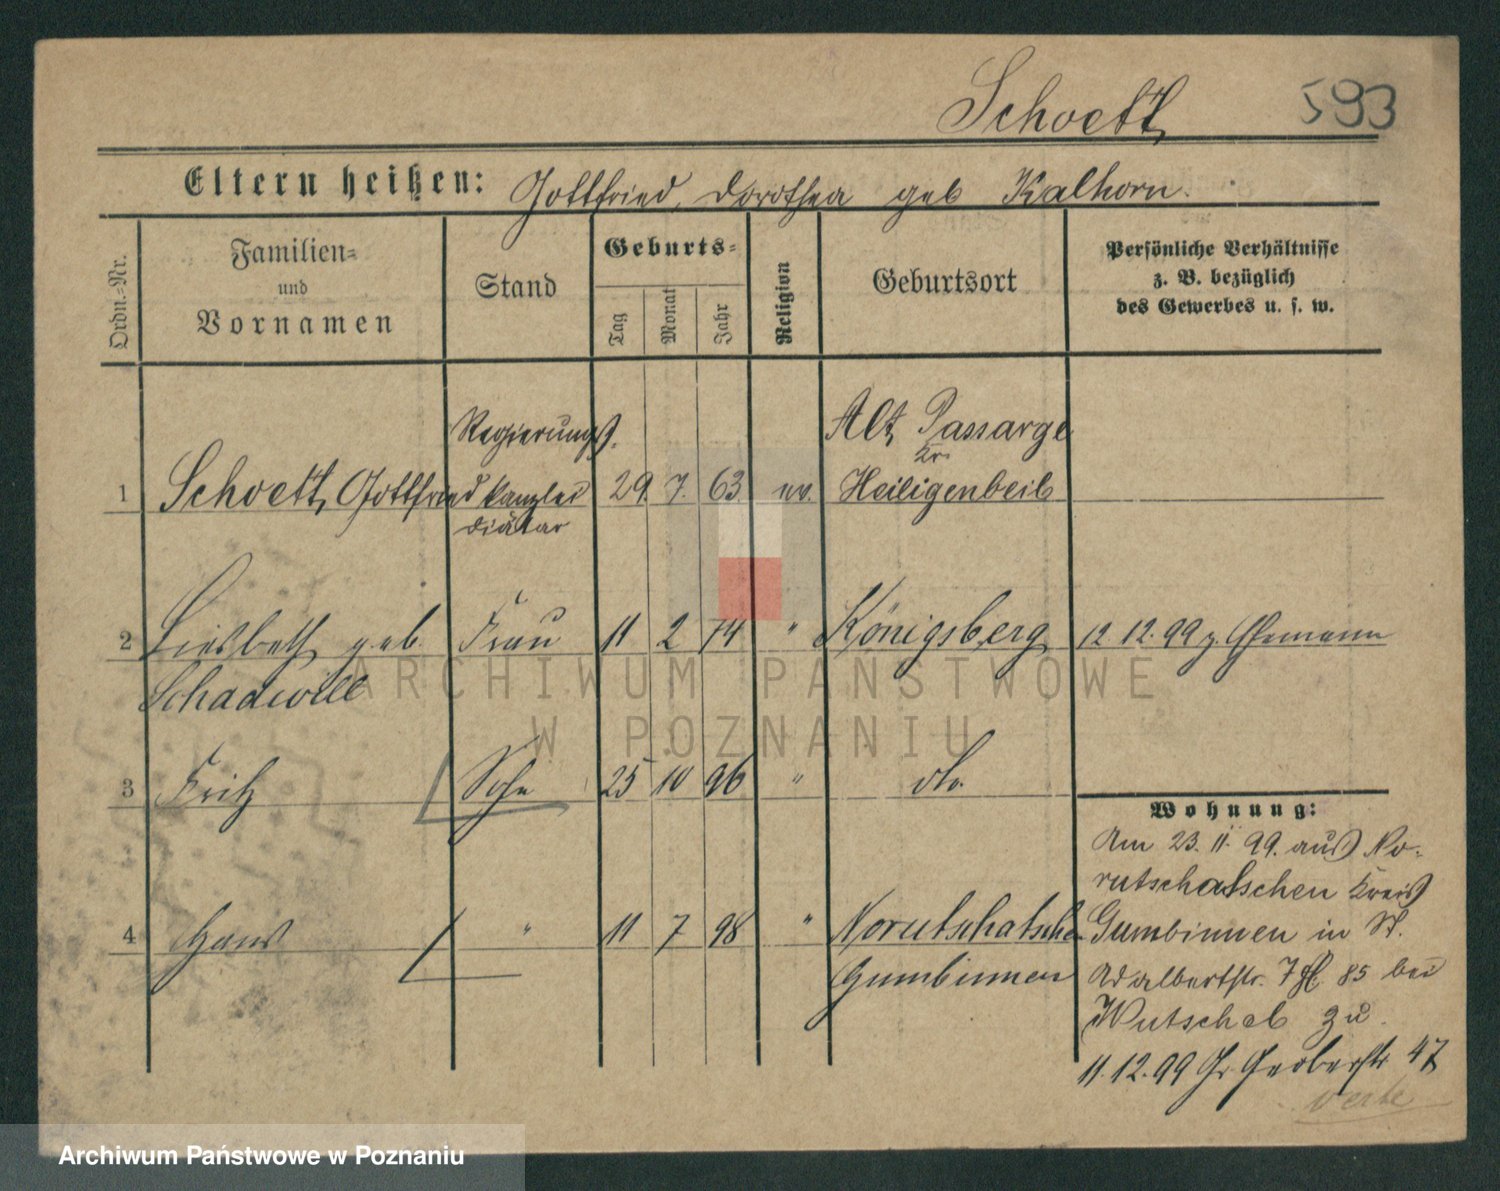 Schoett
593
Eltern heißen: Gottfried, Dorothea geb Kalhorn.
Ordn.-Nr.
Familien-
und
Vornamen
Stand
Geburts-
Tag
Monat
Jahr
Religion
Geburtsort
Persönliche Verhältnisse
z. B. bezüglich
des Gewerbes u. s. w.
1 Schoett, Gottfried
Regierungs.
kanzlei
diätar
29. 7. 63. ev.
Alt Passarge
Kr.
Heiligenbeil
2 Liesbeth geb. Frau 11 2 74 " Königsberg 12 12. 99 z. Ehemann
Schadwill
3 Fritz Sohn 25 10 96 " do.
4 Hans " 11 7 98 " Norutschatschen
Gumbinnen
Wohnung:
Am 23. 11. 99. aus No-
rutschatschen Kreis
Gumbinnen in St.
Adalbertstr. 7 85 bei
Wutschab zu
11. 12. 99 Gr Gerberstr 47
ARCHIWUM PAŃSTWOWE
W POZNANIU
Archiwum Państwowe w Poznaniu